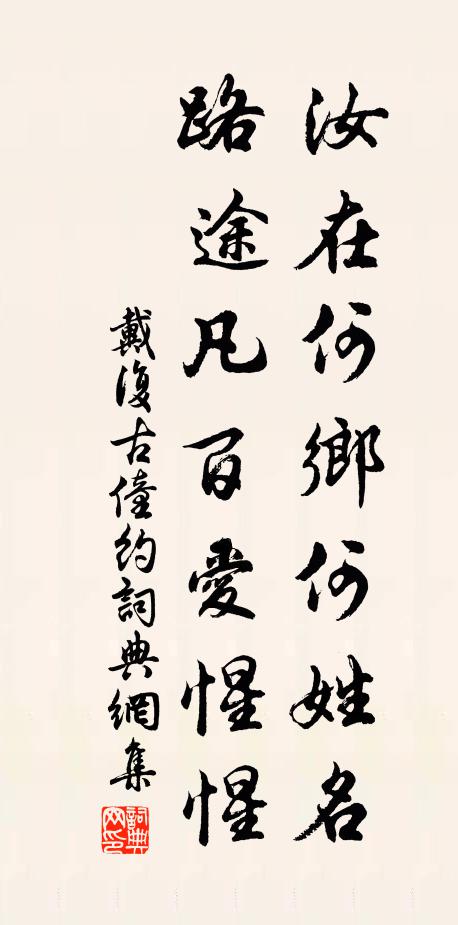 汝在何鄉何姓名
路途凡百愛惺惺
戴復古僮約詞典網集
詞典网印